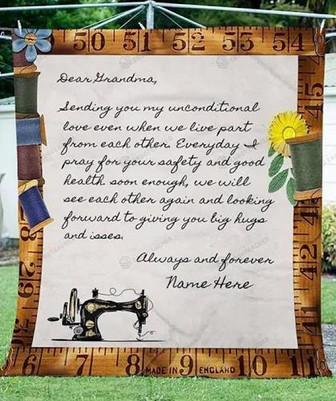 50 51 52 53 54
Dear Grandma,
Sending you my unconditional
love even when we live part
from each other. Everyday I
pray for your safety and good
health soon enough, we will
see each other again and looking
forward to giving you big hugs
and isses.
Always and forever
Name Here
6 7 8 MADE IN ENGLAND 10 11